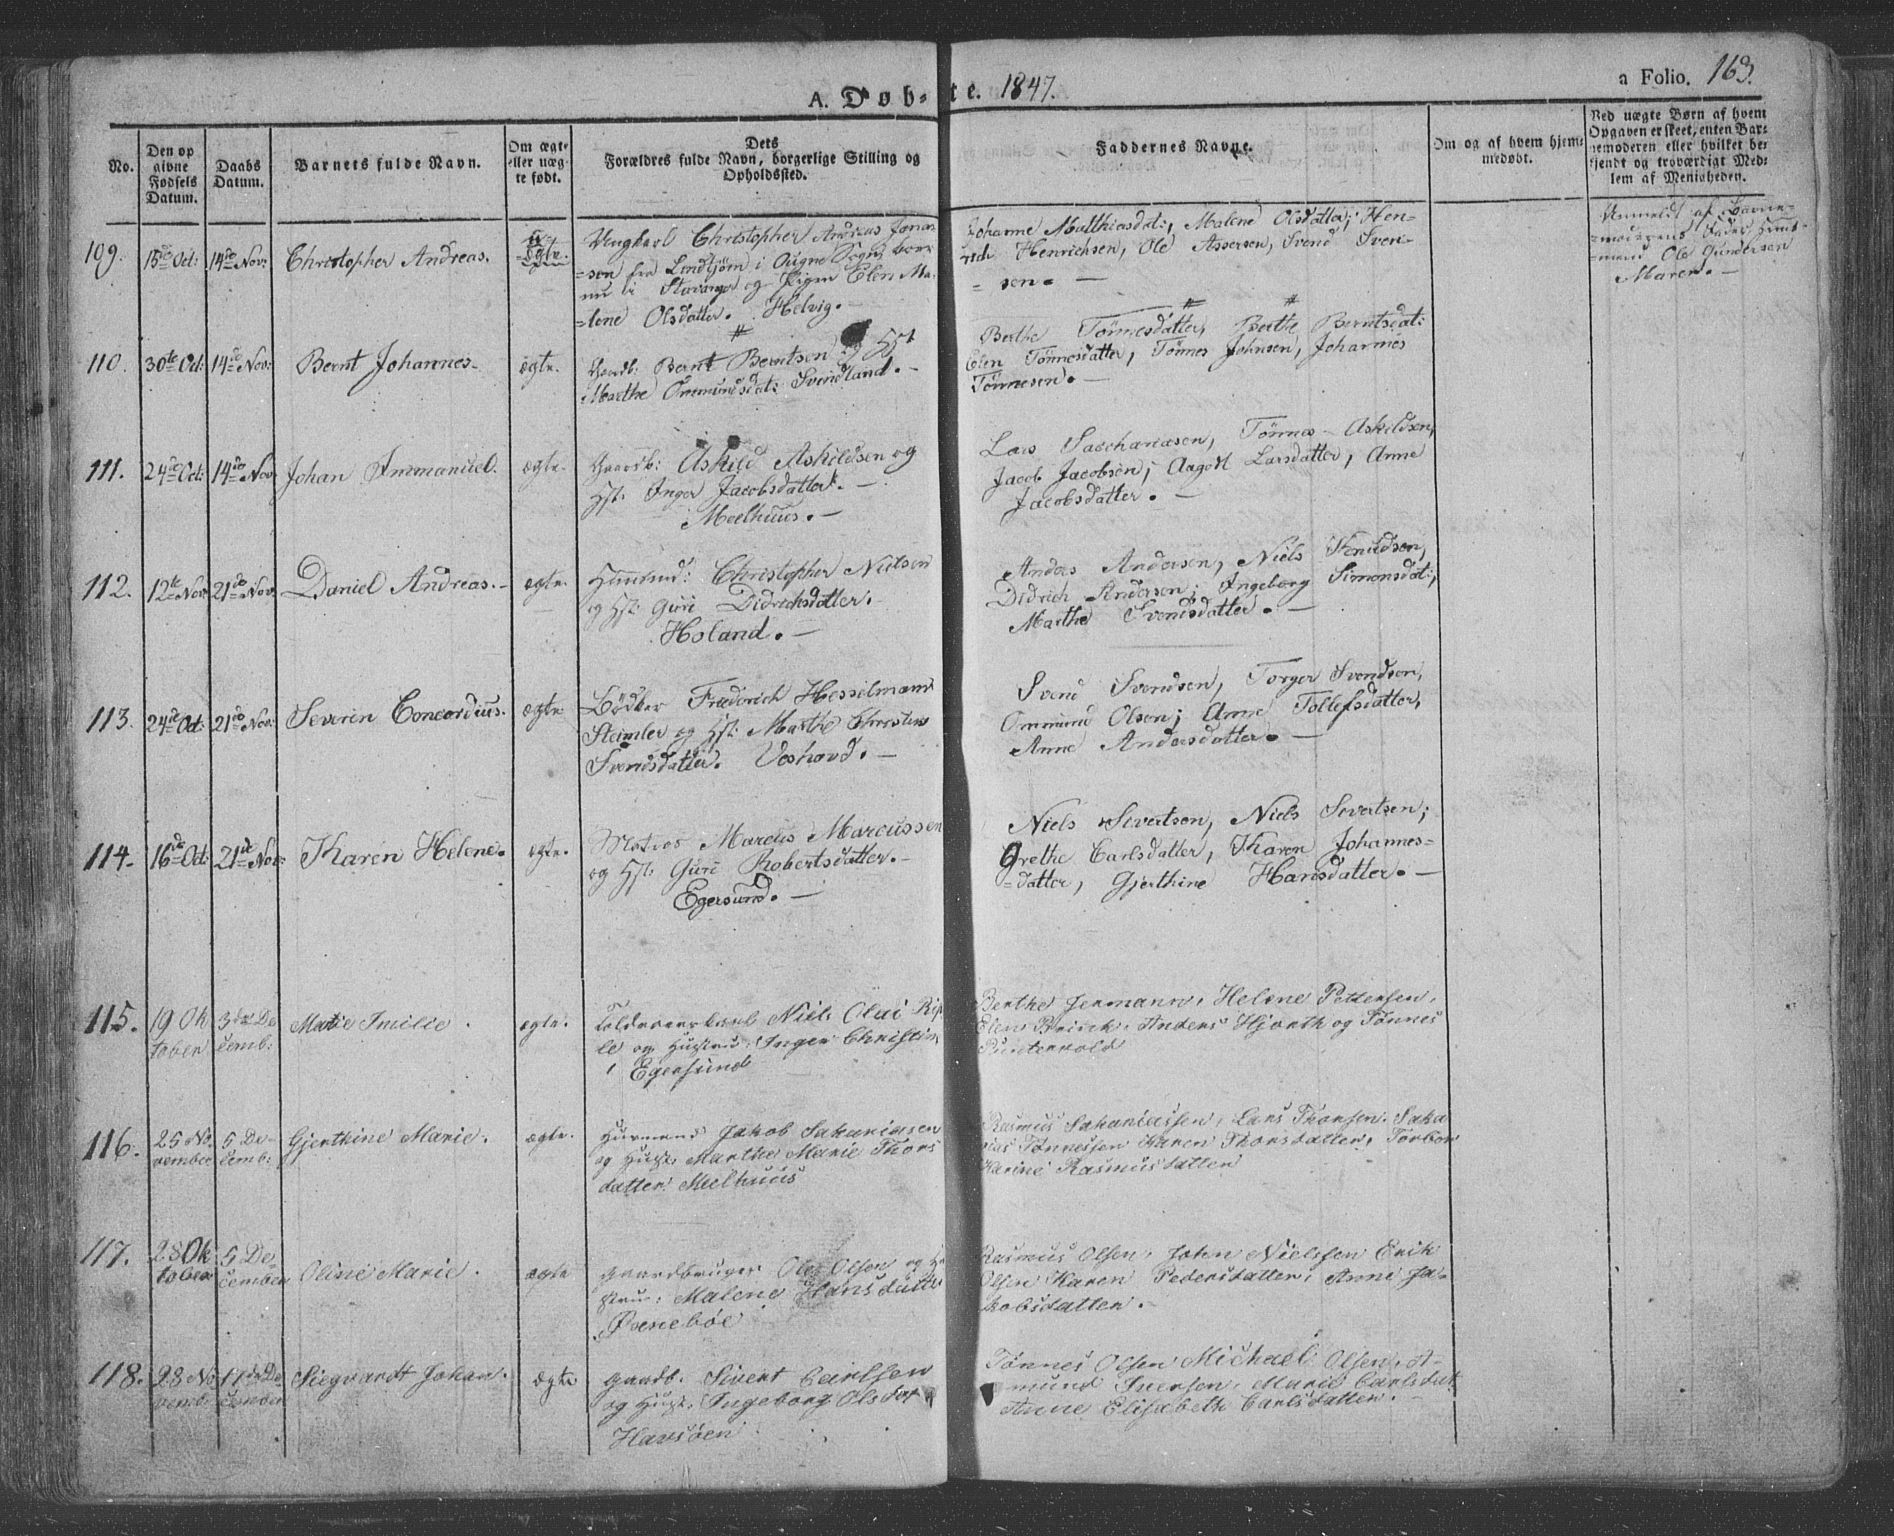 A. Døb-te. 1847.
a Folio. 163.
No.
Den op
givne
Fødsels
Datum.
Daabs
Datum.
Barnets fulde Navn.
Om ægte
eller uæg-
te født.
Dets
Forældres fulde Navn, borgerlige Stilling og
Opholdssted.
Faddernes Navne.
Om og af hvem hjemme-
medøbt.
Ved uægte Børn af hvem
Opgaven er skeet, enten Bar-
nemoderen eller hvilket be-
kjendt og troværdigt Med-
lem af Menigheden.
109. 15de Oct: 14de Nov: Christopher Andreas. uægte.
Ungkarl Christopher Andreas Jonas-
sen fra Lindtjørn i Sogn, boen-
nu i Stavanger og Pigen Elen Ma-
lene Olsdatter. Helvig. —
Johanne Matthiasdat:, Malene Olsdatter; Hen-
rich Henrichsen, Ole Assersen, Svend Sven-
sen. —
Anmeldt af Barne-
moderens Fader Huus-
mand Ole Gundersen
Maren. —
110. 30te Oct: 14de Nov: Bernt Johannes. ægte.
Gaardb: Bernt Berntsen og Hst
Marthe Ommundsdat: Svindland. —
Berthe Tönnesdatter, Berthe Berntsdat:
Elen Tönnesdatter, Tönnes Johnsen, Johannes
Tönnesen. —
111. 24de Oct: 14de Nov: Johan Immanuel. ægte.
Gaardb: Askild Askildsen og
Hst: Inger Jacobsdatter. —
Meelhuus. —
Lars Sacchariasen, Tönnes Askildsen,
Jacob Jacobsen; Aagot Larsdatter, Anne
Jacobsdatter. —
112. 12te Nov: 21de Nov: Daniel Andreas. — ægte.
Huusmd: Christopher Nielsen
og Hst: Guri Didrichsdatter. —
Holand. —
Anders Andersen, Niels Knudsen,
Didrich Andersen; Ingeborg Simonsdat:,
Marthe Svendsdatter. —
113. 24de Oct: 21de Nov: Severin Concordius. ægte
Bödker Frederich Hesselmann
Steimler og Hst: Marthe Christine
Svendsdatter. Veshovd. —
Svend Svendsen, Torger Svendsen,
Ommund Olsen; Anne Tollefsdatter,
Anne Andersdatter. —
114. 16de Oct: 21de Nov: Karen Helene. ægte.
Matros Marcus Marcussen
og Hst: Guri Robertsdatter. —
Egersund. —
Niels Sivertsen, Niels Severtsen;
Grethe Carlsdatter, Karen Johannes-
datter, Gjerthine Hansdatter. —
115. 19 Ok
tober 3die De
cemb: Marie Emilie. ægte.
Toldroerskarl Niels Olai Rip
le og Hustru: Inger Christine
Egersund
Berthe Jermann, Helene Pettersen,
Elen Brinck, Anders Hjorth og Tönnes
Puntervold
116. 25 No
vember 5 De-
cemb: Gjerthine Marie. ægte.
Huusmand Jakob Sakariasen
og Hust. Marthe Marie Thors
datter. Melhuus
Rasmus Sakariassen, Lars Thorsen. Saka
rias Tönnessen Karen Thorsdatter, Torbor
Karine Rasmusdatter
117. 28 Ok
tober 5 De-
cember Oline Marie. ægte
gaardbruger Ole Olsen og Hu
stru: Malene Hansdatter
Øvrebøe
Rasmus Olsen, John Nielssen Erik
Olsen Karen Pedersdatter, Anne Ja-
kobsdatter. —
118. 28 No
vemb. 17de De
cember Siegvardt Johan. ægte
gaardb. Sivert Carlsen
og Hust. Ingeborg Olsdat
Havsøen
Tönnes Olsen Michael Olsen, A-
mund Iversen, Marie Carlsdat
Anne Elisabeth Carlsdatter. —